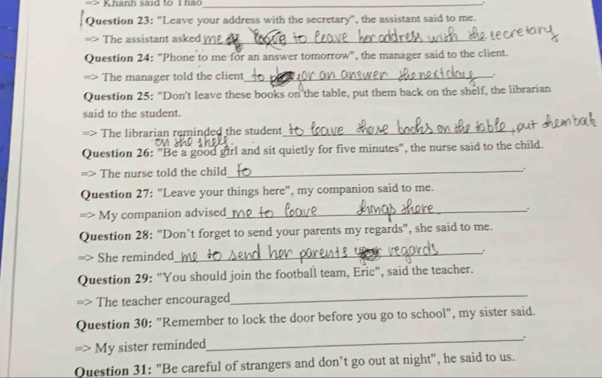 => Khanh said to Thao
Question 23: "Leave your address with the secretary", the assistant said to me.
=> The assistant asked me to leave her address with the secretary
Question 24: "Phone to me for an answer tomorrow", the manager said to the client.
=> The manager told the client to for an answer the next day.
Question 25: "Don't leave these books on the table, put them back on the shelf, the librarian
said to the student.
=> The librarian reminded the student to leave those books on the table, put them back
on the shelf.
Question 26: "Be a good girl and sit quietly for five minutes", the nurse said to the child.
=> The nurse told the child to.
Question 27: "Leave your things here", my companion said to me.
=> My companion advised me to leave things there.
Question 28: "Don't forget to send your parents my regards", she said to me.
=> She reminded me to send her parents regards.
Question 29: "You should join the football team, Eric", said the teacher.
=> The teacher encouraged
Question 30: "Remember to lock the door before you go to school", my sister said.
=> My sister reminded.
Question 31: "Be careful of strangers and don't go out at night", he said to us.